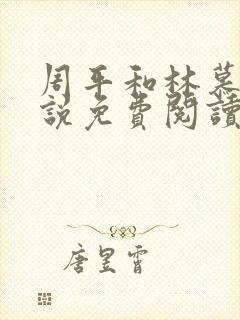 周平和林慕
說免費閱讀
唐昱霄